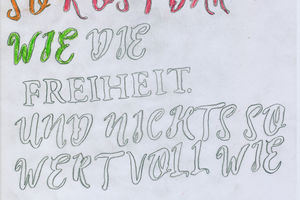 SO KOSTBAR
WIE DIE
FREIHEIT.
UND NICHTS SO
WERTVOLL WIE